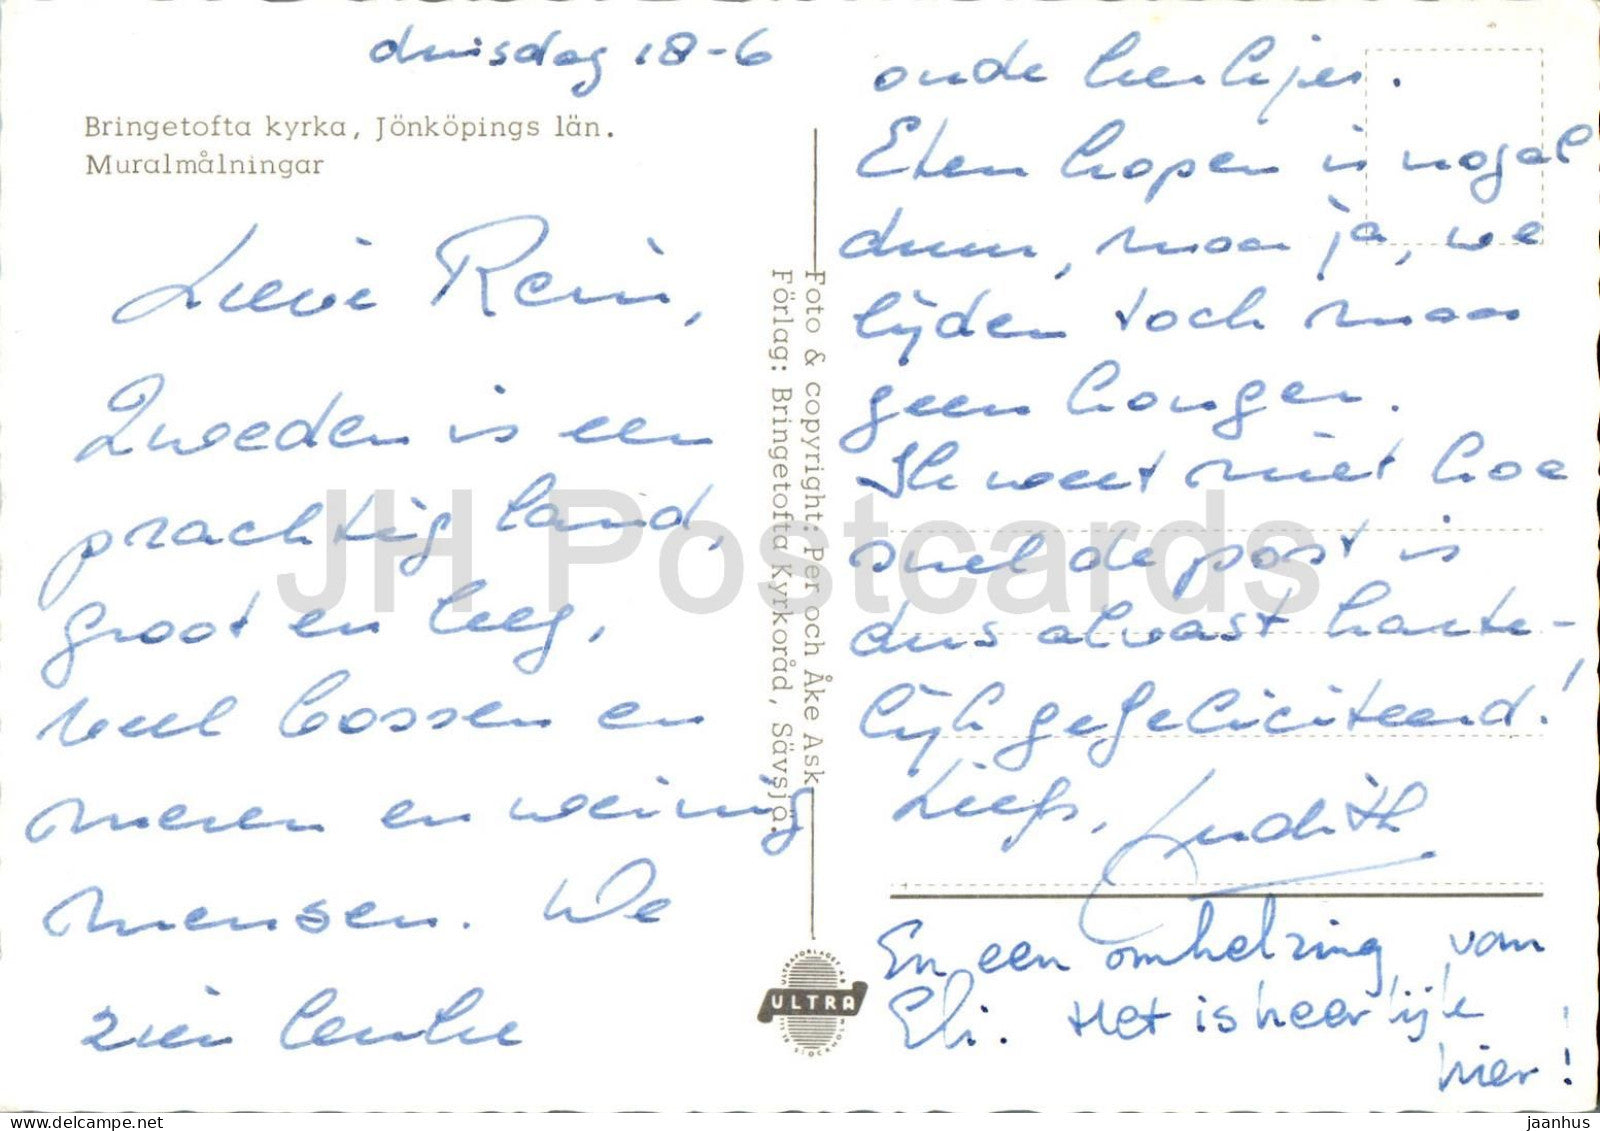 dinsdag 18-6
Bringetofta kyrka, Jönköpings län.
Muralmålningar
Lieve Rein,
Zweden is een
prachtig land,
groot en leeg,
veel bossen en
meren en weinig
mensen. We
zien leuke
oude kerkjes.
Eten kopen is nogal
duur, maar ja, we
lijden toch maar
geen honger.
Ik weet niet hoe
snel de post is
dus alvast harte-
lijk gefeliciteerd!
Liefs, Judith
En een omhelzing van
Eli. Het is heerlijk
hier!
Foto & copyright: Per och Åke Ask
Förlag: Bringetofta Kyrkoråd, Sävsjö.
ULTRAFÖRLAGET A.B.
ULTRA
STOCKHOLM
JH Postcards
jaanhus